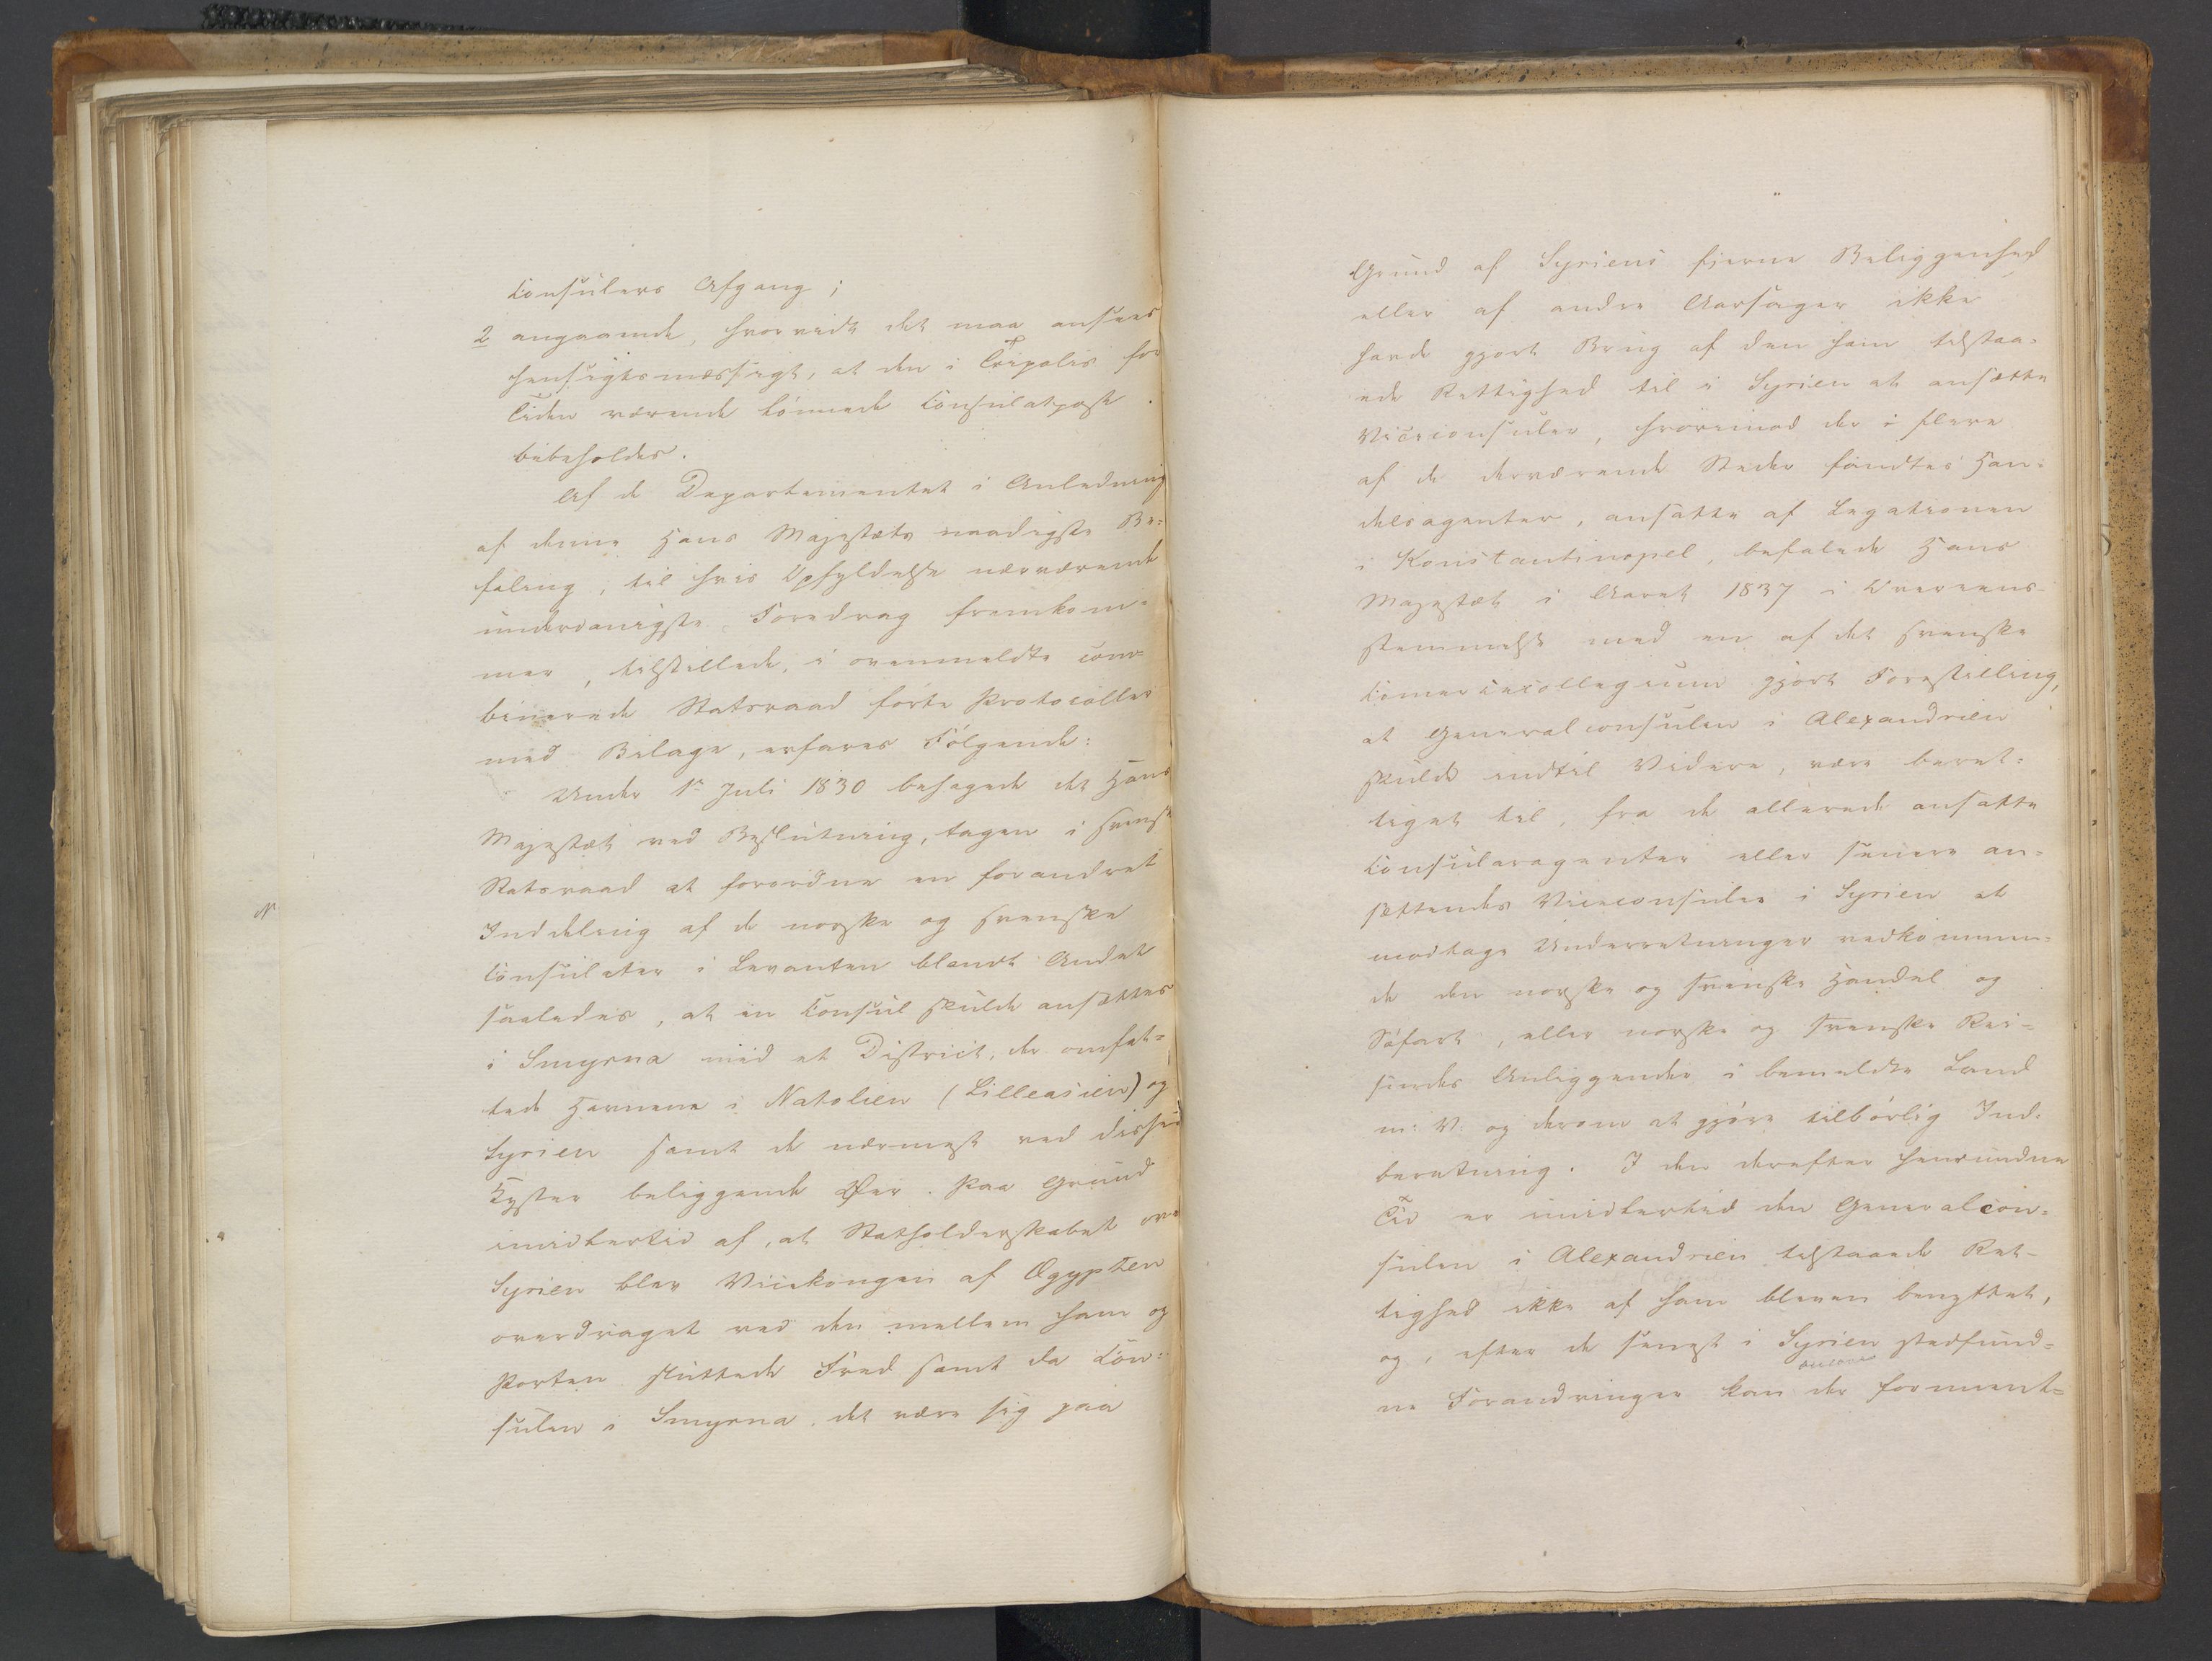 Consulers Afgang;
2 angaaende, hvorvidt det maa ansees
hensigtsmæssigt, at den i Tripolis for
Tiden værende lønnede Consulatpost
bibeholdes.
Af de Departementet i Anledning
af denne Hans Majestæts naadigste Be=
faling, til hvis Opfyldelse nærværende
underdanigste Foredrag fremkom=
mer, tilstillede, i ovenmeldte com=
binerede Statsraad førte Protocoller
med Bilage, erfares Følgende:
Under 1ste Juli 1830 behagede det Hans
Majestæt ved Beslutning, tagen i svensk
Statsraad at forordne en forandret
Inddeling af de norske og svenske
Consulater i Levanten blandt Andet
saaledes, at en Consul skulde ansættes
i Smyrna med et District, der omfat=
tede Havnene i Natolien (Lilleasien) og
Syrien samt de nærmest ved disse
Kyster beliggende Øer. Paa Grund
imidlertid af, at Statholderskabet over
Syrien blev Vicekongen af Ægypten
overdraget ved den mellem ham og
Porten sluttede Fred samt da Con=
sulen i Smyrna, det være sig paa
Grund af Syriens fjerne Beliggenhed
eller af andre Aarsager ikke
havde gjort Brug af den ham tilstaa=
ede Rettighed til i Syrien at ansætte
Viceconsuler, hvorimod der i flere
af de derværende Steder fandtes Han=
delsagenter, ansatte af Legationen
i Konstantinopel, befalede Hans
Majestæt i Aaret 1837 i Overeens=
stemmelse med en af det svenske
Commercecollegium gjort Forestilling,
at Generalconsulen i Alexandrien
skulde indtil Videre, være beret=
tiget til, fra de allerede ansatte
Consularagenter eller senere an=
sættendes Viceconsuler i Syrien at
modtage Underretninger vedkommen=
de den norske og svenske Handel og
Søfart, eller norske og svenske Rei=
sendes Anliggender i bemeldte Land
m: V: og derom at gjøre tilbørlig Ind=
beretning. I den derefter henrundne
Tid er imidlertid den Generalcon=
sulen i Alexandrien tilstaaede Ret=
tighed ikke af ham bleven benyttet,
og, efter de senest i Syrien stedfund=
ne Forandringer kan der forment=